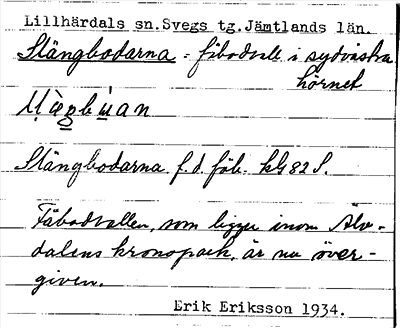 Lillhärdals sn. Svegs tg. Jämtlands län.
Stängbodarna = fäbodvall i sydvästra
hörnet
Stängbodarna f.d. fäb. kbl 82 S.
Fäbodvallen, som ligger inom Älv-
dalens kronopark, är nu över-
given.
Erik Eriksson 1934.